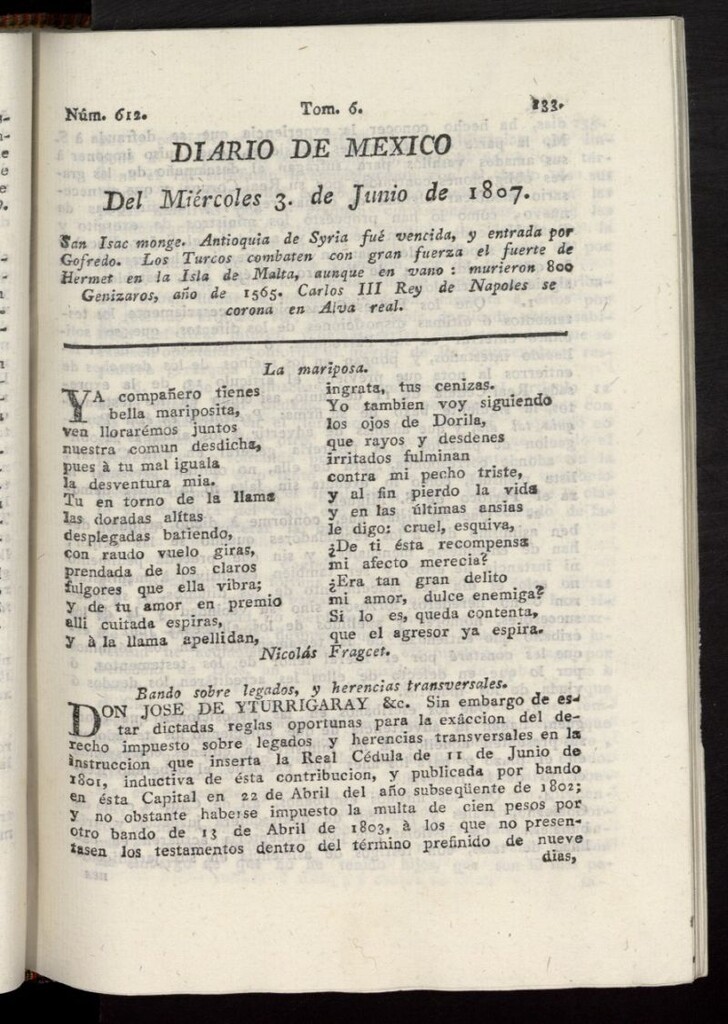 Núm. 612. Tom. 6. 133.
DIARIO DE MEXICO
Del Miércoles 3. de Junio de 1807.
San Isac monge. Antioquia de Syria fué vencida, y entrada por
Gofredo. Los Turcos combaten con gran fuerza el fuerte de
Hermet en la Isla de Malta, aunque en vano : murieron 800
Genizaros, año de 1565. Carlos III Rey de Napoles se
corona en Alva real.
La mariposa.
YA compañero tienes
bella mariposita,
ven llorarémos juntos
nuestra comun desdicha,
pues à tu mal iguala
la desventura mia.
Tu en torno de la llama
las doradas alitas
desplegadas batiendo,
con raudo vuelo giras,
prendada de los claros
fulgores que ella vibra;
y de tu amor en premio
alli cuitada espiras,
y à la llama apellidan,
ingrata, tus cenizas.
Yo tambien voy siguiendo
los ojos de Dorila,
que rayos y desdenes
irritados fulminan
contra mi pecho triste,
y al fin pierdo la vida
y en las últimas ansias
le digo: cruel, esquiva,
¿De ti ésta recompensa
mi afecto merecia?
¿Era tan gran delito
mi amor, dulce enemiga?
Si lo es, queda contenta,
que el agresor ya espira.
Nicolás Fragcet.
Bando sobre legados, y herencias transversales.
DON JOSE DE YTURRIGARAY &c. Sin embargo de es-
tar dictadas reglas oportunas para la exâccion del de-
recho impuesto sobre legados y herencias transversales en la
instruccion que inserta la Real Cédula de 11 de Junio de
1801, inductiva de ésta contribucion, y publicada por bando
en ésta Capital en 22 de Abril del año subseqüente de 1802;
y no obstante haberse impuesto la multa de cien pesos por
otro bando de 13 de Abril de 1803, à los que no presen-
tasen los testamentos dentro del término prefinido de nueve
dias,